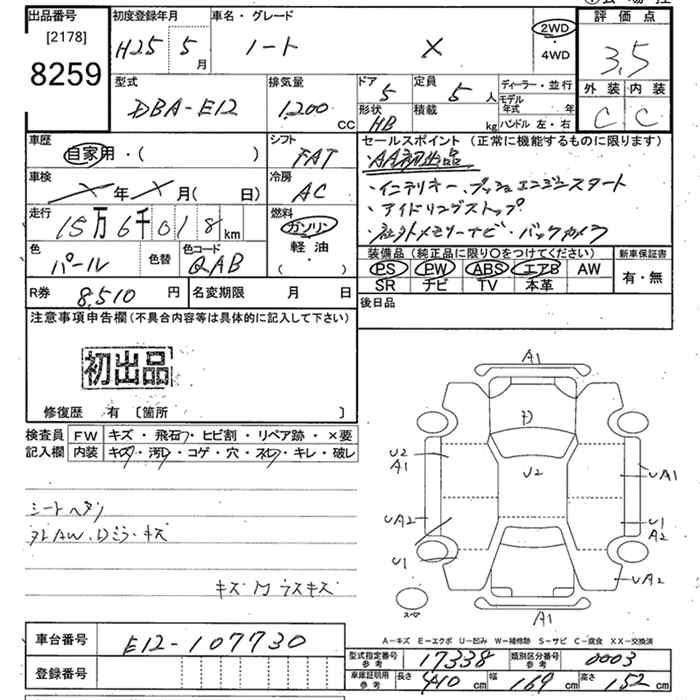 出品番号 初度登録年月 車名・グレード 評価点
[2178] H25 5月 ノート X 2WD・4WD 3.5
8259
外装 内装
C C
型式 排気量 ドア 定員 ディーラー・並行
DBA-E12 1,200 CC 5 5人 モデル年式 年
形状 積載 ハンドル 左・右
HB kg
車歴 シフト セールスポイント (正常に機能するものに限ります)
自家用・( ) FAT ・AA初出品
車検 冷房 ・インテリキー、プッシュエンジンスタート
×年×月(日) AC ・アイドリングストップ
走行 燃料 ・社外メモリーナビ・バックカメラ
15万6千018km ガソリン
軽・油
( )
色 色替 色コード 装備品 (純正品に限り〇をつけてください) 新車保証書
パール QAB PS PW ABS エアB AW 有・無
SR ナビ TV 本革
R券 8,510円 名変期限 月 日 後日品
注意事項申告欄 (不具合内容等は具体的に記入して下さい)
初出品
修復歴 有 〔箇所 〕
検査員 FW キズ・飛石・ヒビ割・リペア跡・×要
記入欄 内装 キズ・汚れ・コゲ・穴・スレ・キレ・破レ
シートヘタリ
キズ
A1
D
U2
A1
U2
UA1
UA2
U1
A2
U1
UA2
A1
スペ
A-キズ E-エクボ U-凹み W-補修跡 S-サビ C-腐食 XX-交換済
車台番号 E12-107730
型式指定番号 参考 17338 類別区分番号 参考 0003
登録番号
車庫証明用 参考 長さ 410cm 幅 169cm 高さ 152cm